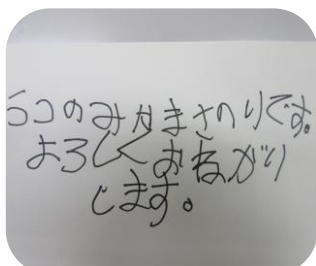 うつのみやまさのりです。
よろしくおねがい
します。